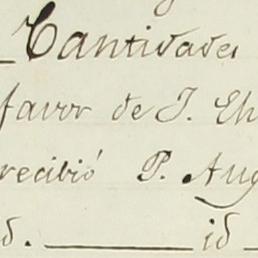 Cantidades
favor de J. Eh
recibió P. Aug
d. id